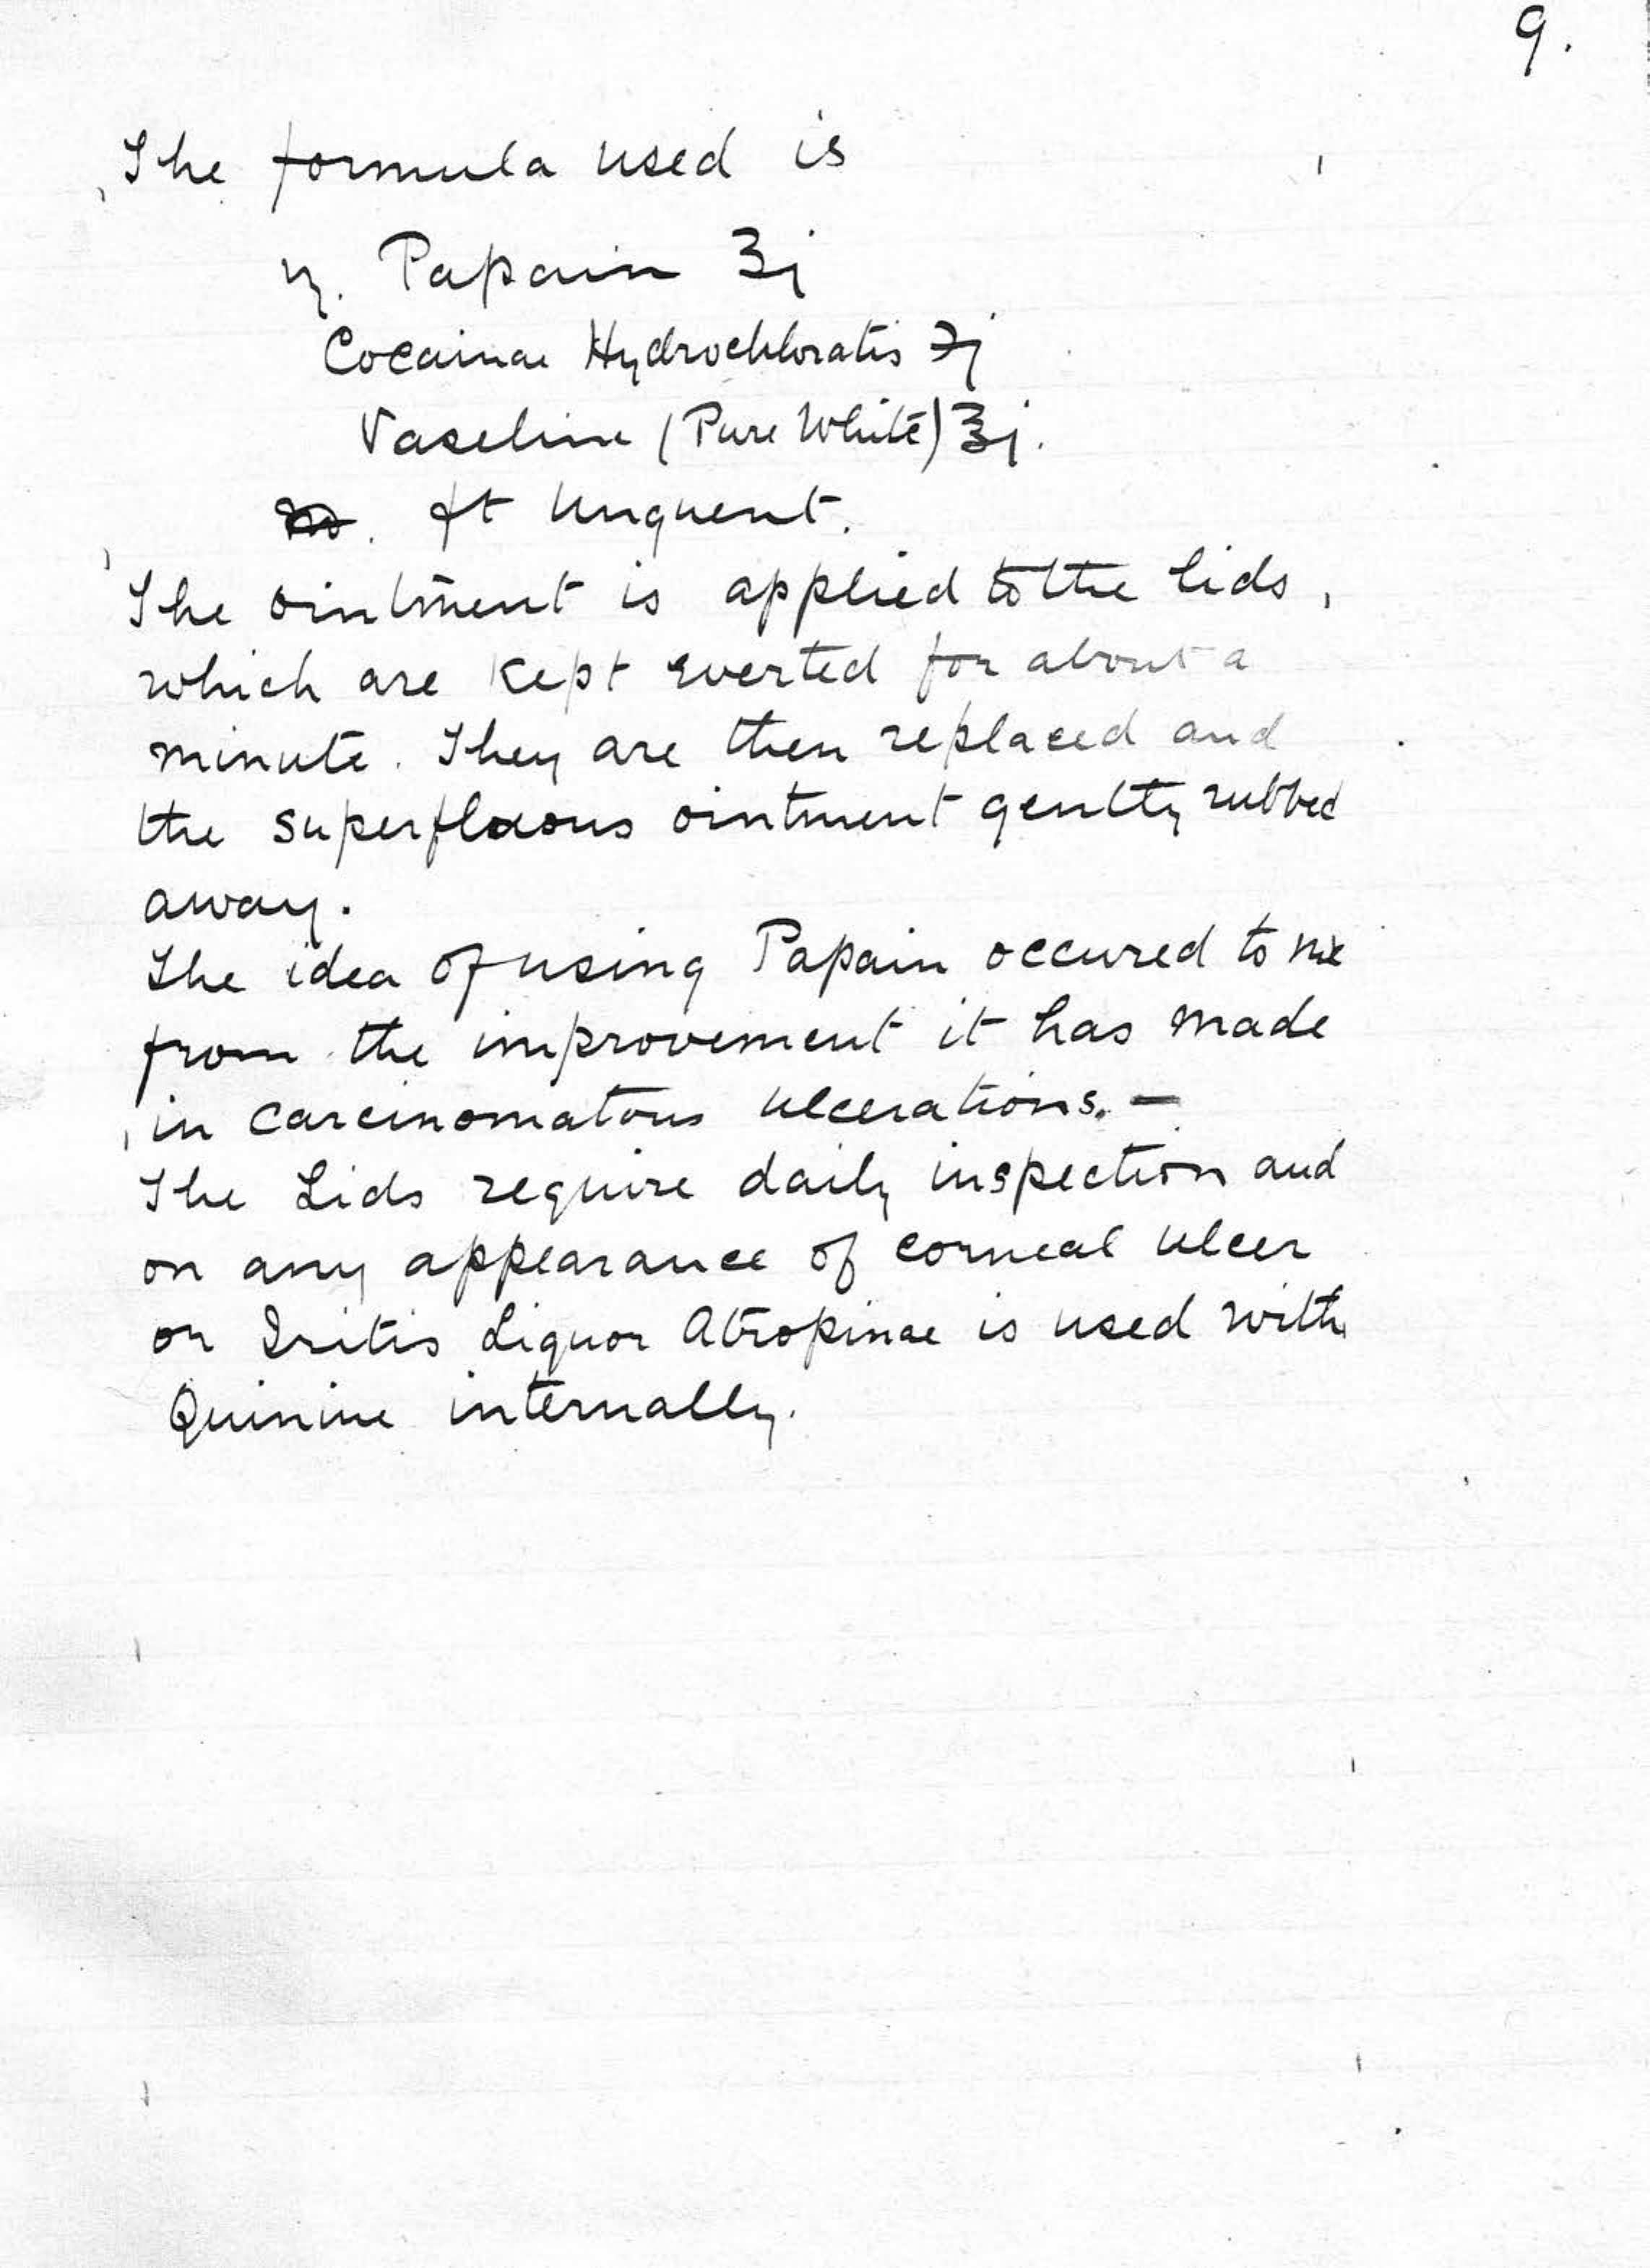 9.
The formula used is
℞. Papain ʒj
Cocainae Hydrochloratis ℈j
Vaseline (Pure White) ℥j.
m. ft Unguent.
The ointment is applied to the lids,
which are kept everted for about a
minute. They are then replaced and
the superfluous ointment gently rubbed
away.
The idea of using Papain occured to me
from the improvement it has made
in carcinomatous ulcerations. —
The Lids require daily inspection and
on any appearance of corneal ulcer
or Iritis Liquor Atropinae is used with
Quinine internally.